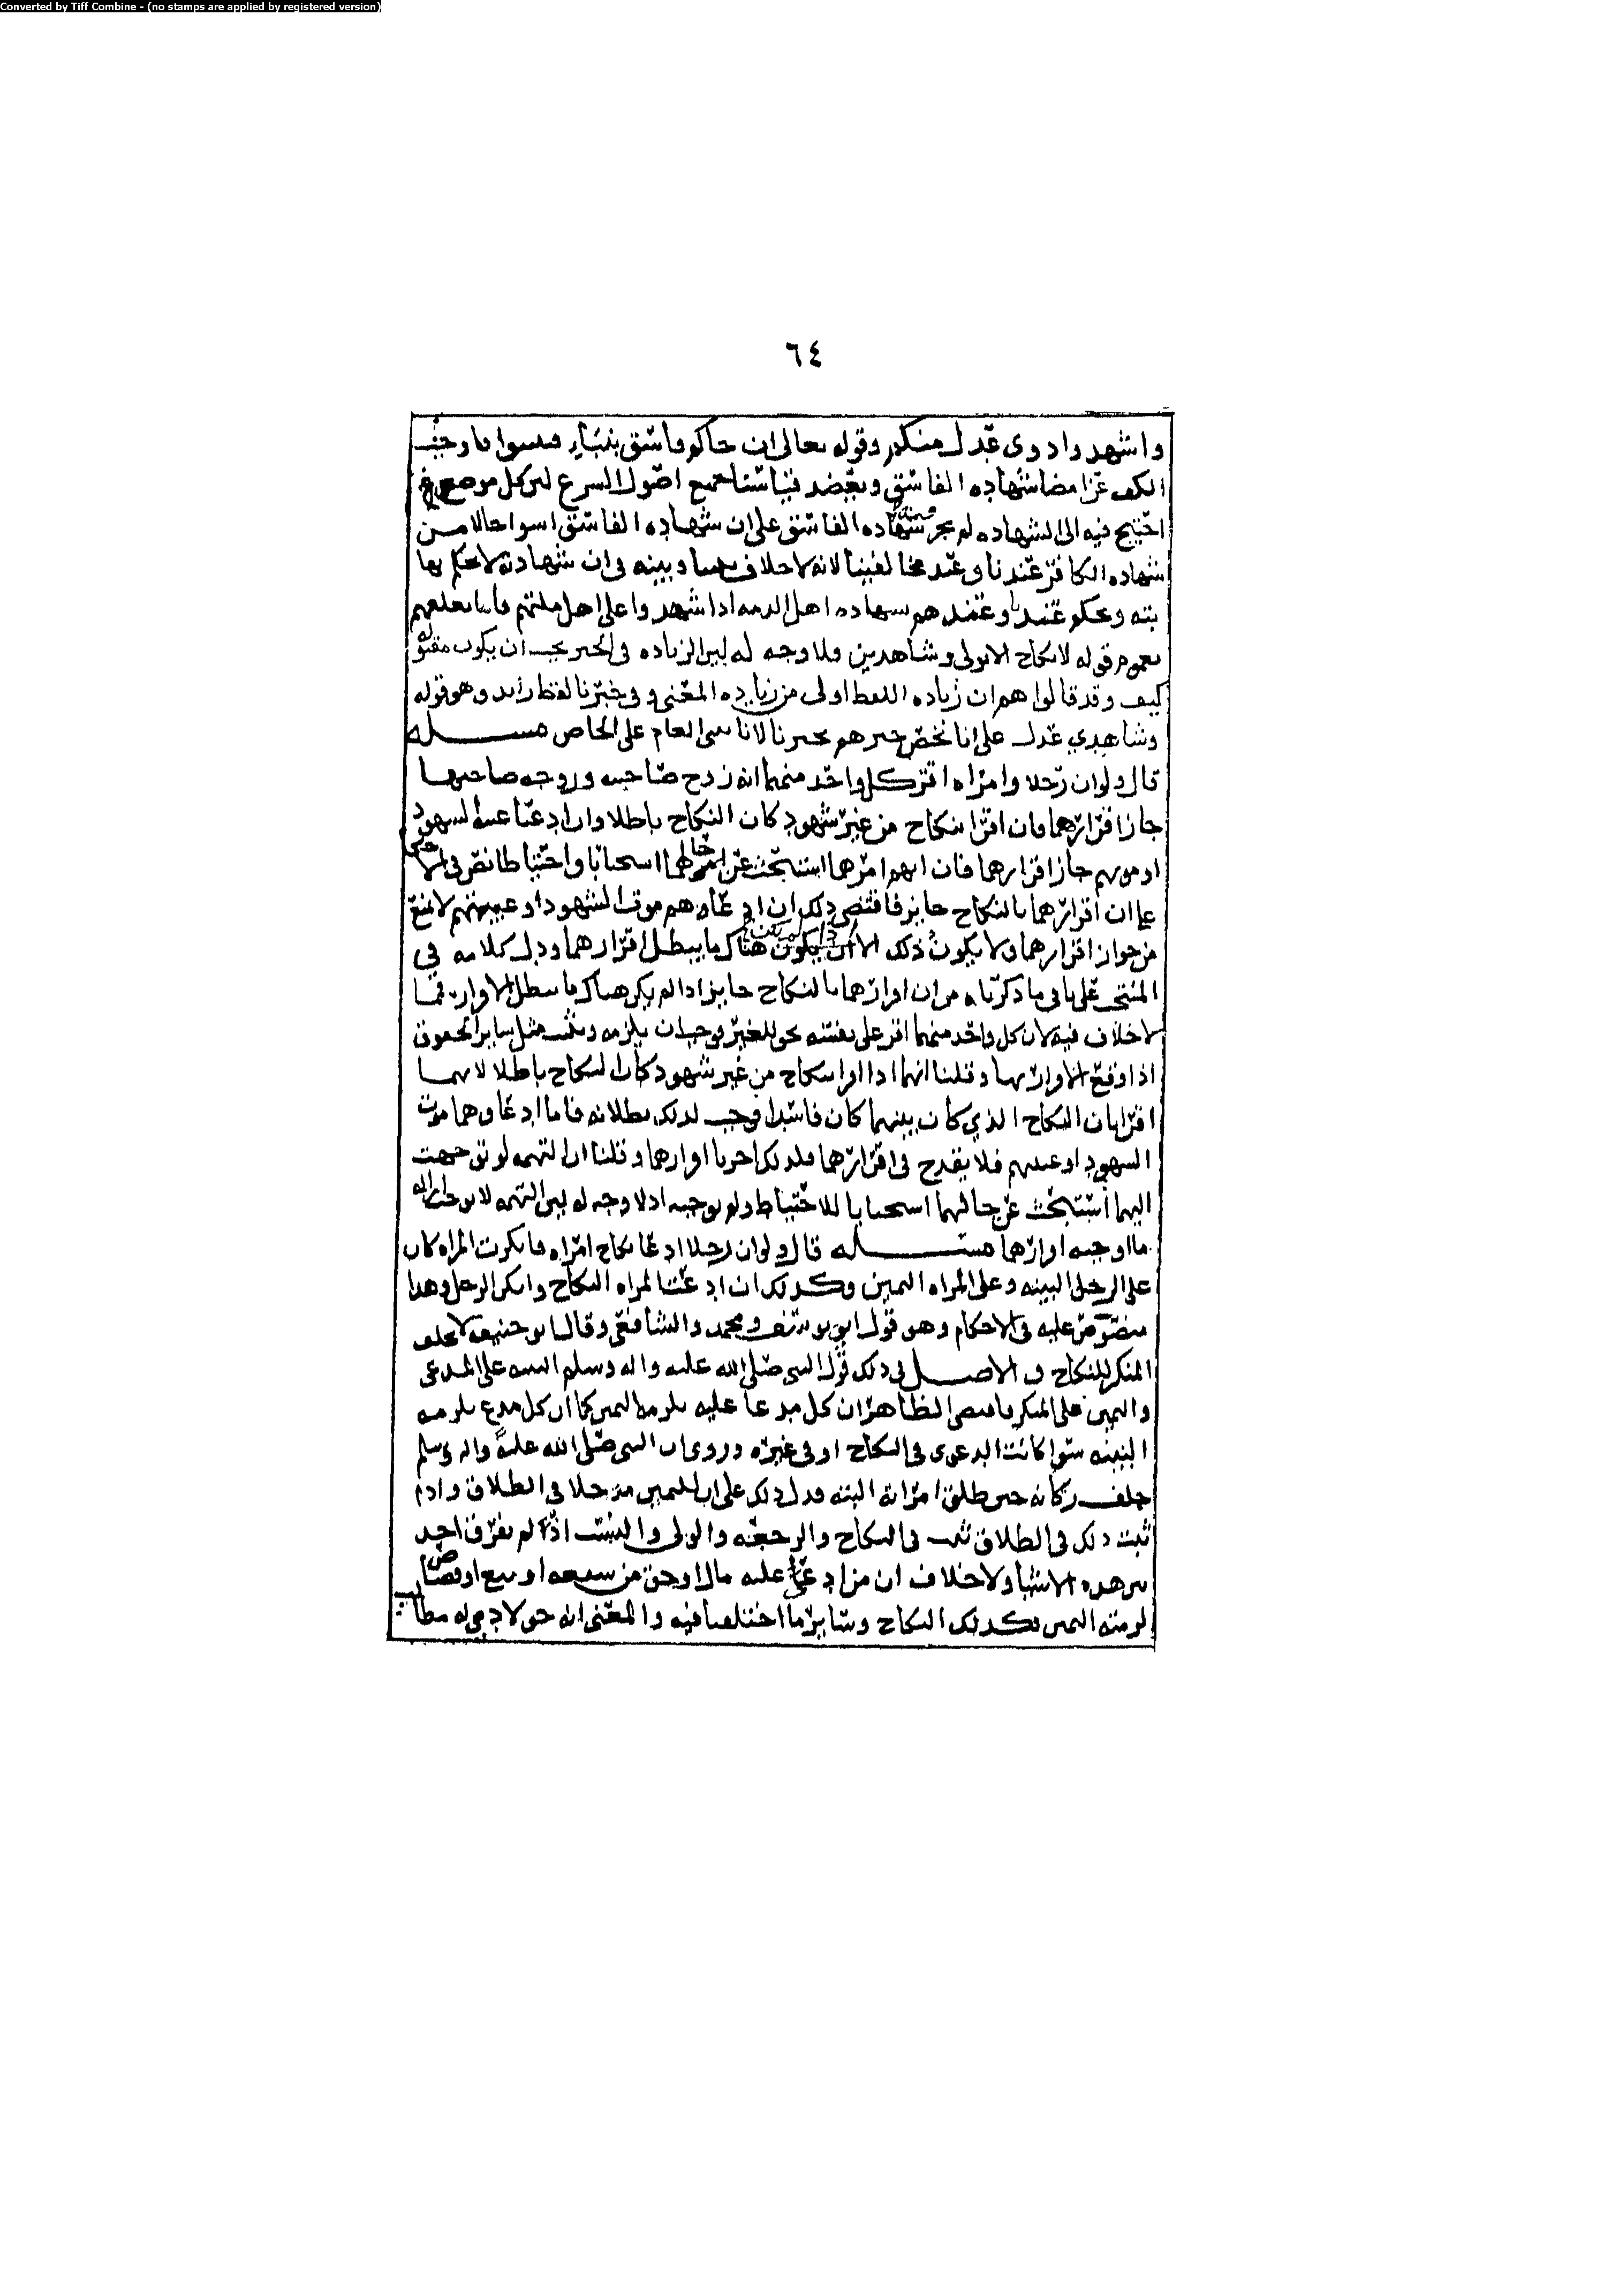 Converted by Tiff Combine - (no stamps are applied by registered version)
٦٤
واشهدوا ذوى عدل منكم وقوله تعالى ان جاكم فاسق بنبأ فتبينوا فاوجب
الكف عن امضا شهاده الفاسق ويعضد قياسنا جميع اصول الشرع لان كل موضع
احتيج فيه الى الشهاده لم يجز شهاده الفاسق على ان شهاده الفاسق اسوا حالا من
شهاده الكافر عندنا وعند مخالفينا لانه لا خلاف بيننا وبينه فى ان شهادته لا يحكم بها
بته ويحكم عندنا وعندهم بشهاده اهل الذمه اذا شهدوا على اهل ملتهم فاما تعلقهم
بعموم قوله لا نكاح الا بولى وشاهدين فلا وجه له لان الزياده فى الخبر يجب ان يكون مقبوله
كيف وقد قالوا هم ان زياده اللفظ اولى من زياده المعنى وفى خبرنا لفظ زايد وهو قوله
وشاهدي عدل على انا نخص خبرهم بخبرنا لانا نبنى العام على الخاص مسئله
قال ولو ان رجلا وامراه اقر كل واحد منهما انه زوج صاحبه وزوجه صاحبها
جاز اقرارهما فان اقرا بنكاح من غير شهود كان النكاح باطلا وان ادعيا غيبه الشهود
او موتهم جاز اقرارهما فان اتهم امرهما استبحث عن حالهما استحبابا واحتياطا نص فى الاحكام
على ان اقرارهما بالنكاح جايز فاقتضى ذلك ان ادعاهم موت الشهود او غيبتهم لا يمنع
من جواز اقرارهما ولا يكون ذلك الا ان يكون هناك ما يبطل اقرارهما ودل كلامه في
المنتخب على باقى ما ذكرناه من ان اقرارهما بالنكاح جايز اذا لم يكن هناك ما يبطل الاقرار مما
لا خلاف فيه لان كل واحد منهما اقر على نفسه بحق للغير فوجب ان يلزمه ويثبت مثل ساير الحقوق
اذا وقع الاقرار بها وقلنا انهما اذا اقرا بنكاح من غير شهود كان النكاح باطلا لانهما
اقرا بان النكاح الذي كان بينهما كان فاسدا فوجب لذلك بطلانه فاما ادعاوهما موت
الشهود او غيبتهم فلا يقدح فى اقرارهما فلذلك اجزنا اقرارهما وقلنا ان التهمه لو توجهت
اليهما استبحث عن حالهما استحبابا للاحتياط ولم نوجبه اذ لا وجه له لان التهمه لا توجب ازاله
ما اوجبه اقرارهما مسئله قال ولو ان رجلا ادعا نكاح امراه فانكرت المراه كان
على الرجل البينه وعلى المراه اليمين وكذلك ان ادعت المراه النكاح وانكر الرجل وهذا
منصوص عليه فى الاحكام وهو قول ابو يوسف ومحمد والشافعى وقال ابو حنيفه لا يحلف
المنكر للنكاح والاصل فى ذلك قول النبى صلى الله عليه واله وسلم البينه على المدعى
واليمين على المنكر فاقتضى الظاهر ان كل مدعا عليه يلزمه اليمين كما ان كل مدع يلزمه
البينه سوا كانت الدعوى فى النكاح او فى غيره وروى ان النبى صلى الله عليه واله وسلم
حلف ركانه حين طلق امراته البته فدل ذلك على ان لليمين مدخلا فى الطلاق واذا
ثبت ذلك فى الطلاق ثبت فى النكاح والرجعه والولى والنسب اذ لم يفرق احد
بين هذه الاشيا ولا خلاف ان من ادعى عليه مال او حق من شفعه او بيع او قصاص
لزمته اليمين فكذلك النكاح وساير ما اختلفنا فيه والمعنى انه حق لادمى له مطالب